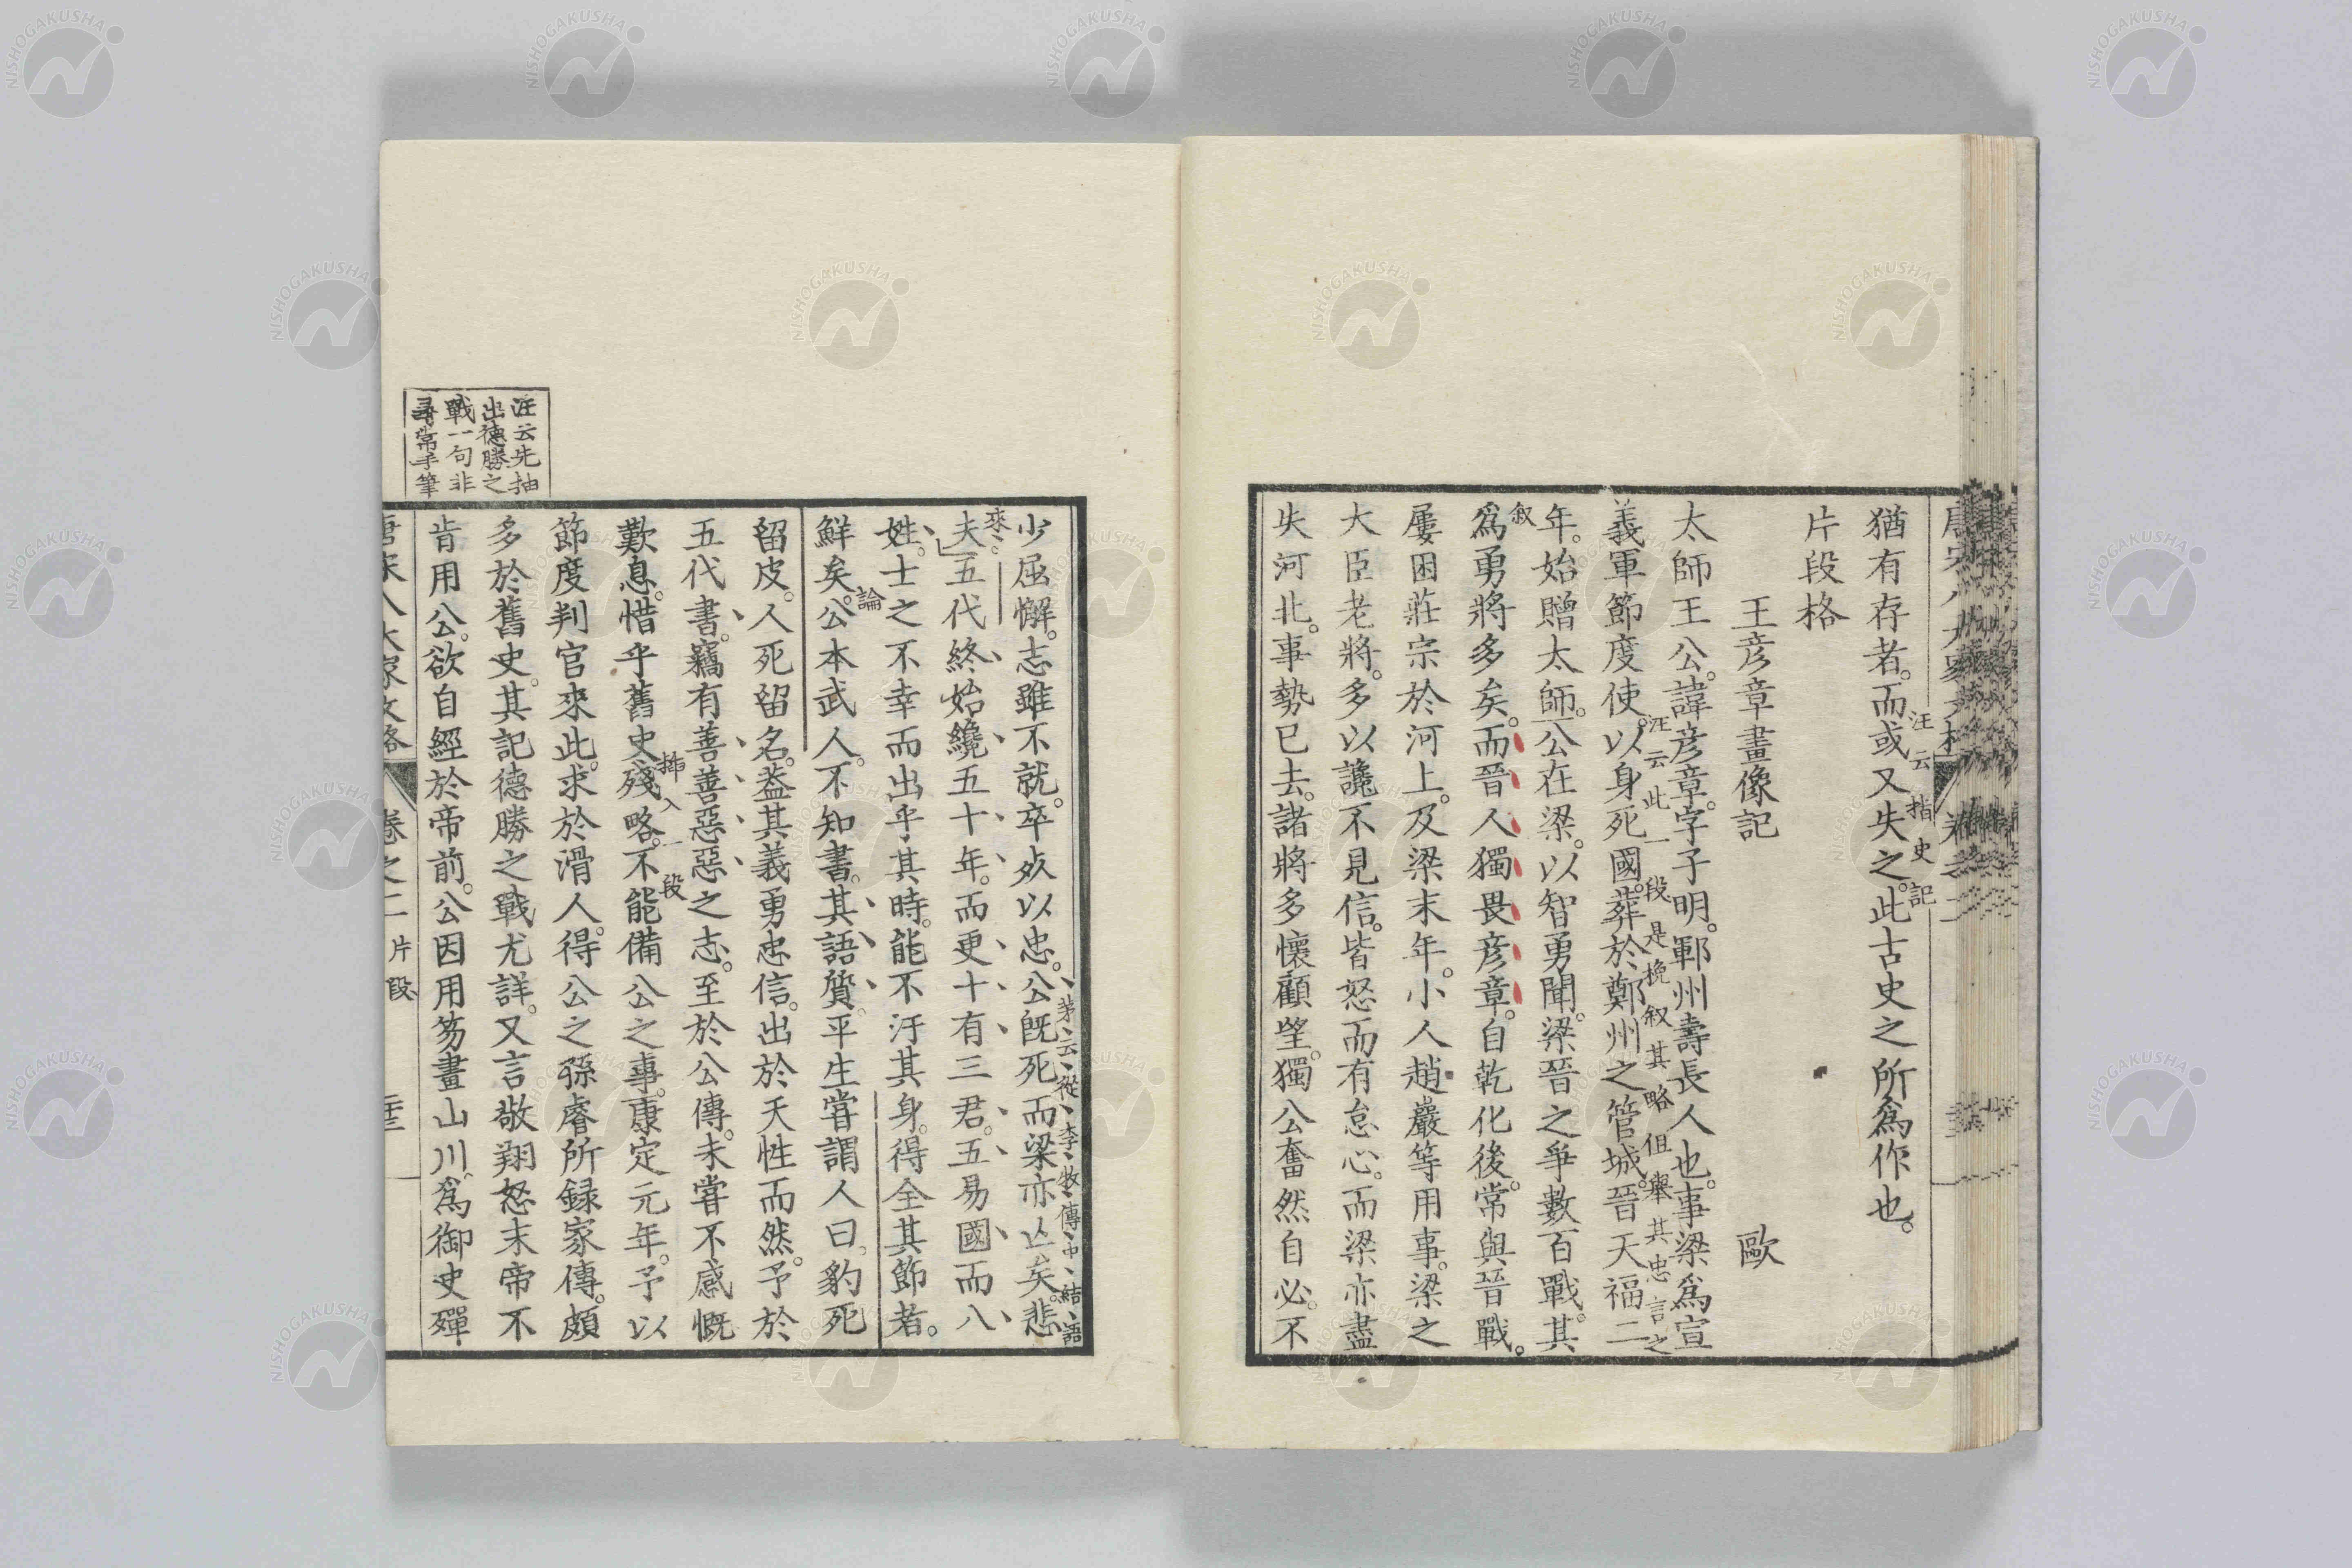 猶有存者。而或又失之。此古史之所爲作也。
汪云指史記
片段格
王彦章畫像記 歐
太師王公。諱彦章。字子明。鄆州壽長人也。事梁爲宣
義軍節度使。以身死國。葬於鄭州之管城。晉天福二
汪云此一段是挽叙其略但舉其忠言之
年。始贈太師。公在梁。以智勇聞。梁晉之爭數百戰。其
叙
爲勇將多矣。而晉人獨畏彦章。自乾化後。常與晉戰。
屢困莊宗於河上。及梁末年。小人趙巖等用事。梁之
大臣老將。多以讒不見信。皆怒而有怠心。而梁亦盡
失河北。事勢已去。諸將多懷顧望。獨公奮然自必。不
少屈懈。志雖不就。卒歿以忠。公旣死而梁亦亡矣。悲
茅云從李牧傳中結語來
夫。五代終始纔五十年。而更十有三君。五易國而八
姓。士之不幸而出乎其時。能不汙其身。得全其節者。
鮮矣。公本武人。不知書。其語質。平生嘗謂人曰。豹死
論
留皮。人死留名。葢其義勇忠信。出於天性而然。予於
五代書。竊有善善惡惡之志。至於公傳。未嘗不感慨
歎息。惜乎舊史殘略。不能備公之事。康定元年。予以
插入一段
節度判官來此。求於滑人。得公之孫睿所録家傳。頗
多於舊史。其記德勝之戰尤詳。又言敬翔怒末帝不
肯用公。欲自經於帝前。公因用笏畫山川。爲御史彈
汪云先抽
出德勝之
戰一句非
尋常手筆
唐宋八大家文格 卷之二 片段